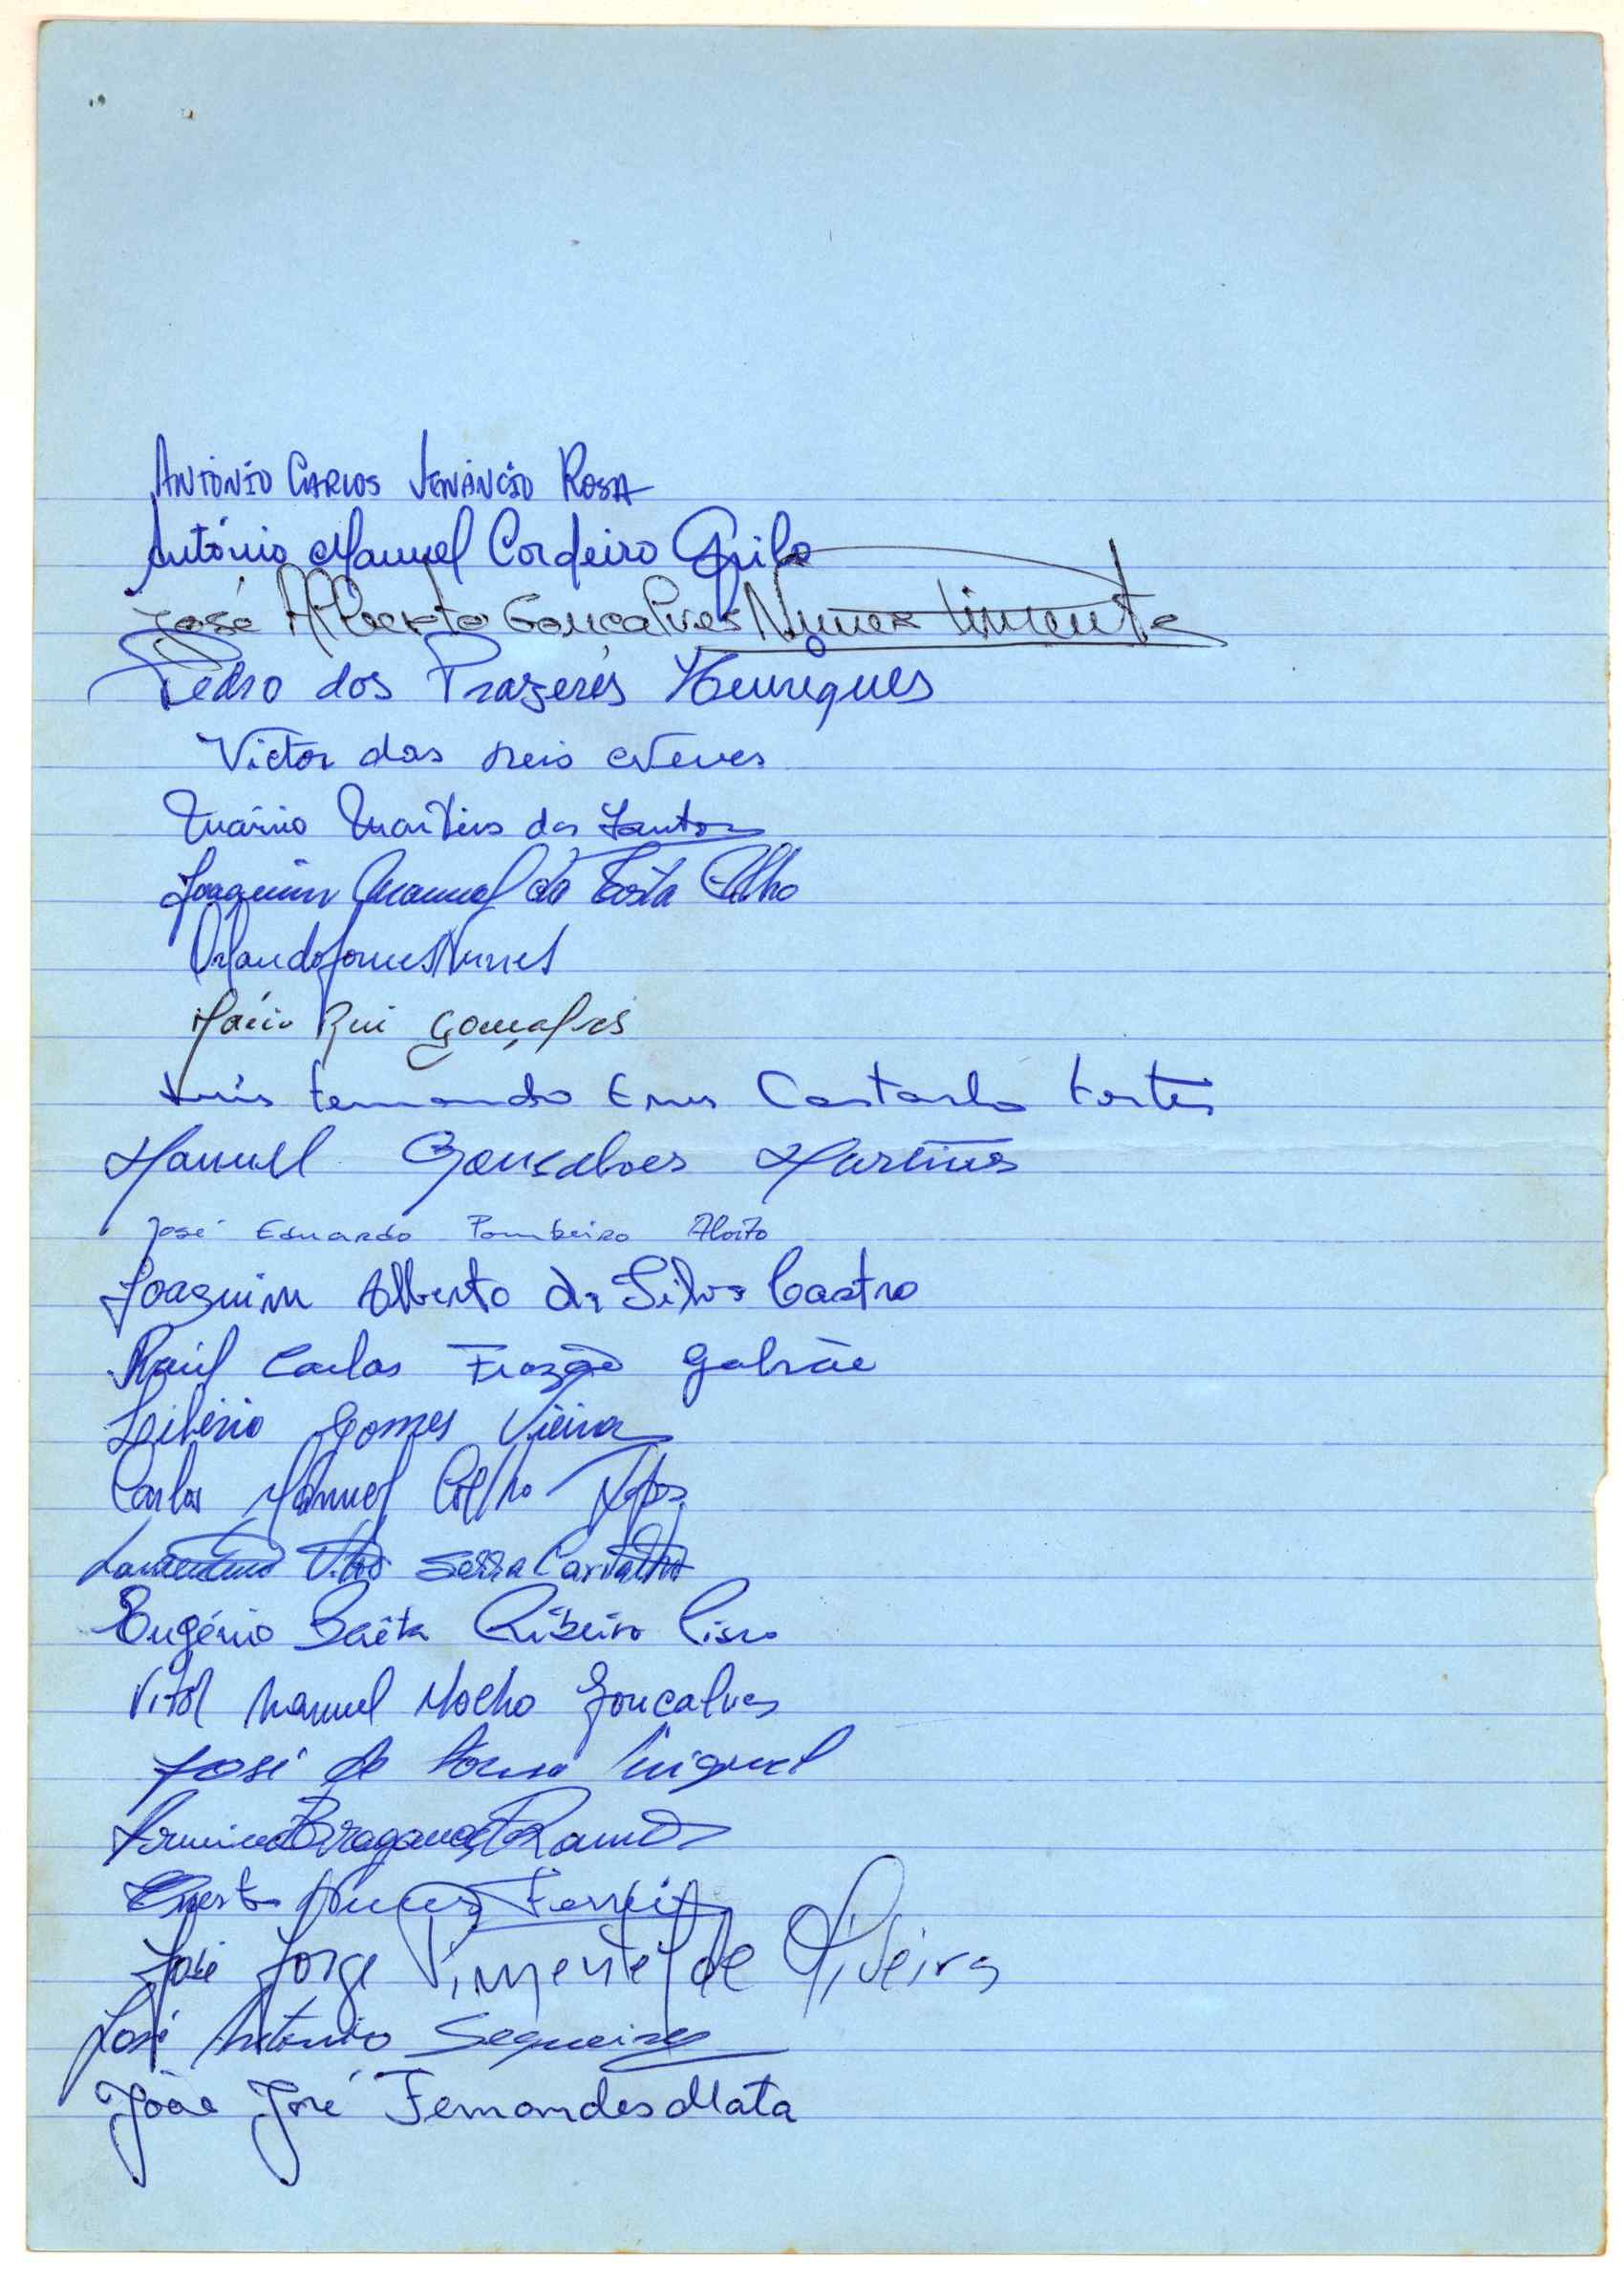 António Carlos Venâncio Rosa
António Manuel Cordeiro Grilo
José Alberto Gonçalves Nunes Pimenta
Pedro dos Prazeres Henriques
Victor dos Reis Neves
Mário Martins dos Santos
Joaquim Manuel da Costa
Orlando Gomes Nunes
Mário Rui Gonçalves
Luís Fernando
Manuel Gonçalves Martins
José Eduardo Pombeiro
Joaquim Alberto da Silva Castro
Raúl Carlos Frazão Galvão
Gomes Vieira
Carlos Manuel Coelho Lopes
Serra Carvalho
Eugénio Ribeiro
Vitor Manuel Mocho Gonçalves
José de Sousa Miguel
Bragança Ramos
Nunes Ferreira
José Jorge Pimentel de Oliveira
José António Sequeira
João José Fernandes Mata